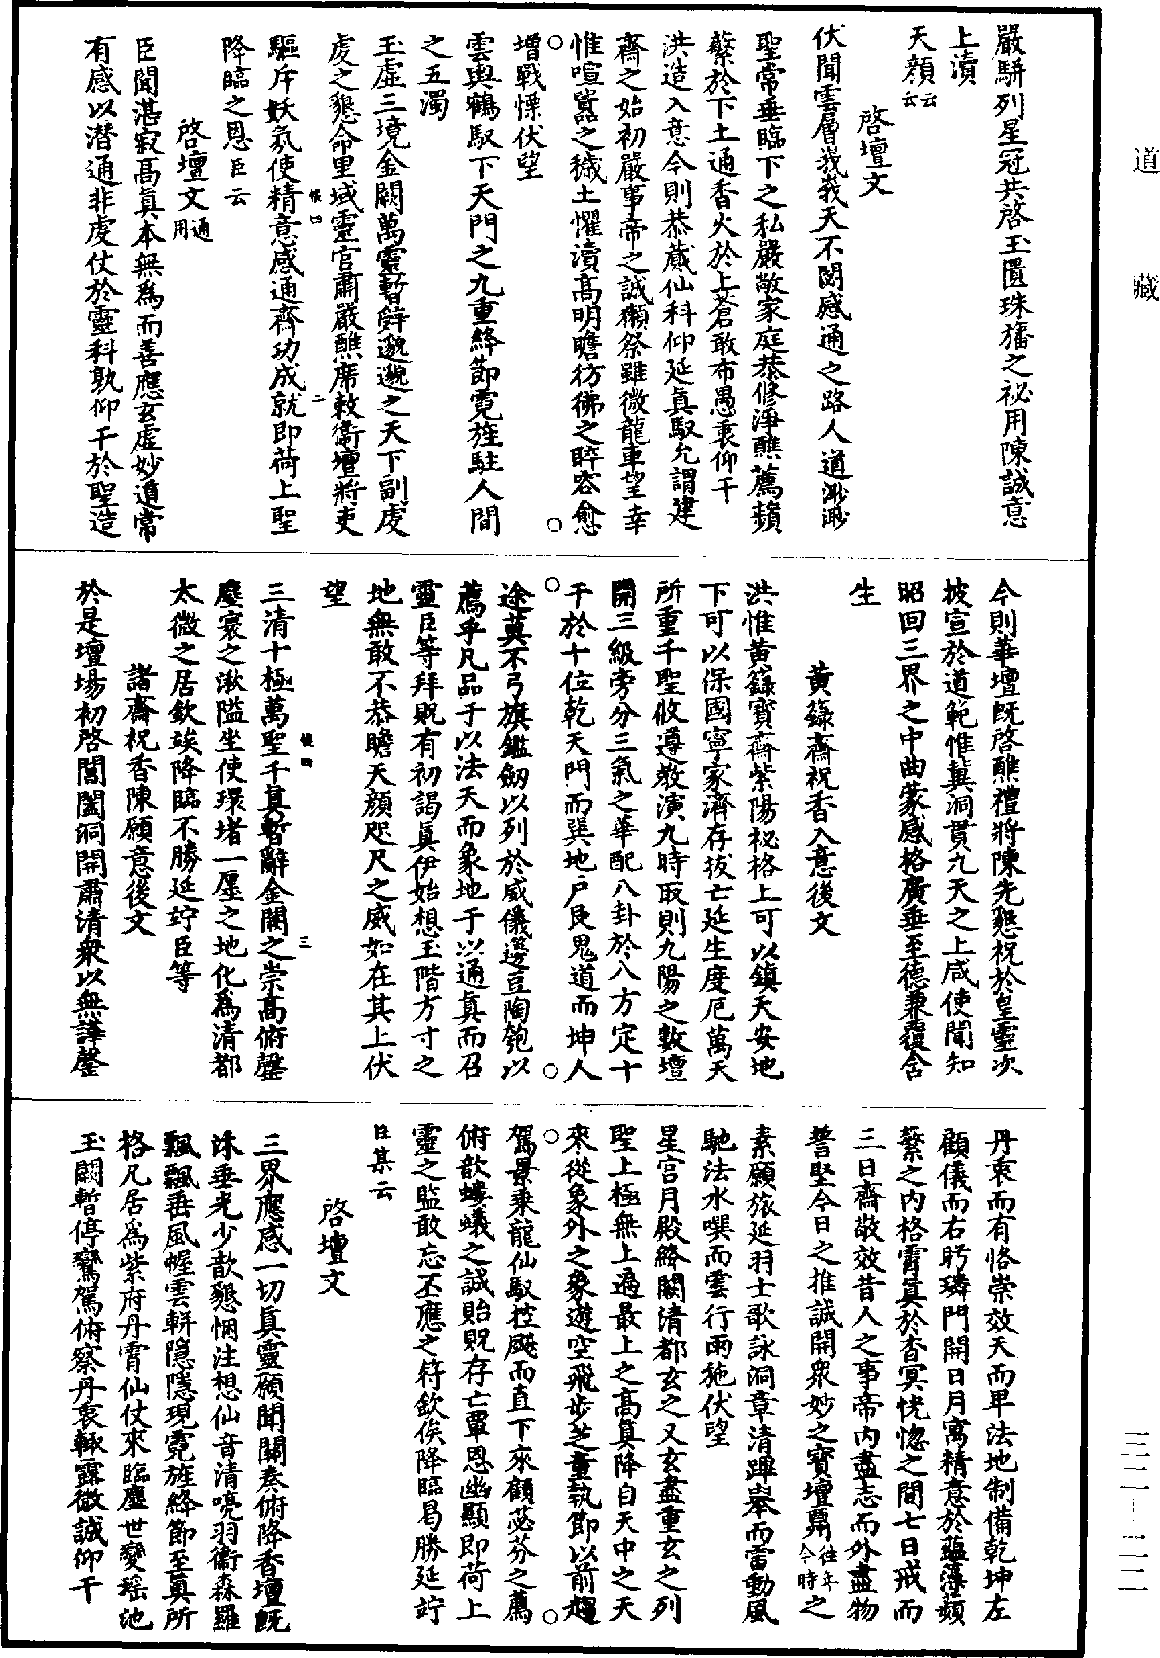 道藏
嚴駢列星冠共啓玉匱珠牆之祕用陳誠意
上瀆
天顏云云
啓壇文
伏聞雲層峩峩天不閟感通之路人道渺渺
聖常垂臨下之私嚴敞家庭恭修淨醮薦蘋
蘩於下土通香火於上蒼敢布愚衷仰干
洪造入意今則恭蕆仙科仰延真馭允謂建
齋之始初嚴事帝之誠獺祭雖微龍車望幸
惟喧囂之穢土懼瀆高明瞻彷彿之睟容愈
增戰慄伏望
雲輿鶴馭下天門之九重絳節霓旌駐人間
之五濁
玉虛三境金闕萬靈暫辭邈邈之天下副虔
虔之懇命里域靈官肅嚴醮席敕衛壇將吏
驅斥妖氛使精意感通齊功成就即荷上聖
降臨之恩臣云
啓壇文通用
臣聞湛寂高真本無爲而善應玄虛妙道常
有感以潛通非虔仗於靈科孰仰干於聖造
今則華壇既啓醮禮將陳先懇祝於皇靈次
披宣於道範惟冀洞貫九天之上咸使聞知
昭回三界之中曲蒙感格廣垂至德兼覆含
生
黃籙齋祝香入意後文
洪惟黃籙寶齋紫陽秘格上可以鎮天安地
下可以保國寧家濟存拔亡延生度厄萬天
所重千聖攸遵教演九時取則九陽之數壇
開三級旁分三氣之華配八卦於八方定十
干於十位乾天門而巽地戶艮鬼道而坤人
途莫不弓旗鑑劒以列於威儀籩豆陶匏以
薦乎凡品于以法天而象地于以通真而召
靈臣等拜貺有初謁真伊始想玉階方寸之
地無敢不恭瞻天顏咫尺之威如在其上伏
望
三清十極萬聖千真暫辭金闕之崇高俯鑒
塵寰之湫隘坐使環堵一廛之地化爲清都
太微之居欽竢降臨不勝延竚臣等
諸齋祝香陳願意後文
於是壇場初啓閶闔洞開肅清衆以無譁罄
丹衷而有恪崇效天而卑法地制備乾坤左
顧儀而右眄璘門開日月寓精意於蘊藻蘋
蘩之內格霄真於杳冥恍惚之間七日戒而
三日齋敬效昔人之事帝內盡志而外盡物
誓堅今日之推誠開衆妙之寶壇羃往年今時之
素願旅延羽士歌詠洞章清蹕舉而雷動風
馳法水噀而雲行雨施伏望
星宮月殿絳闕清都玄之又玄盡重玄之列
聖上極無上過最上之高真降自天中之天
來從象外之象遊空飛步芝童執節以前趨
駕景乘龍仙馭控飈而直下來顧苾芬之薦
俯歆螻蟻之誠貽貺存亡覃恩幽顯即荷上
靈之監敢忘丕應之符欽俟降臨曷勝延竚
臣某云
啓壇文
三界應感一切真靈願聞關奏俯降香壇既
垂光少歆懇悃注想仙音清喨羽衞森羅
飄飄垂風幄雲軿隱隱現霓旌絳節至真所
格凡居爲紫府丹霄仙仗來臨塵世變瑤池
玉闕暫停鸞駕俯察丹衷輙露微誠仰干